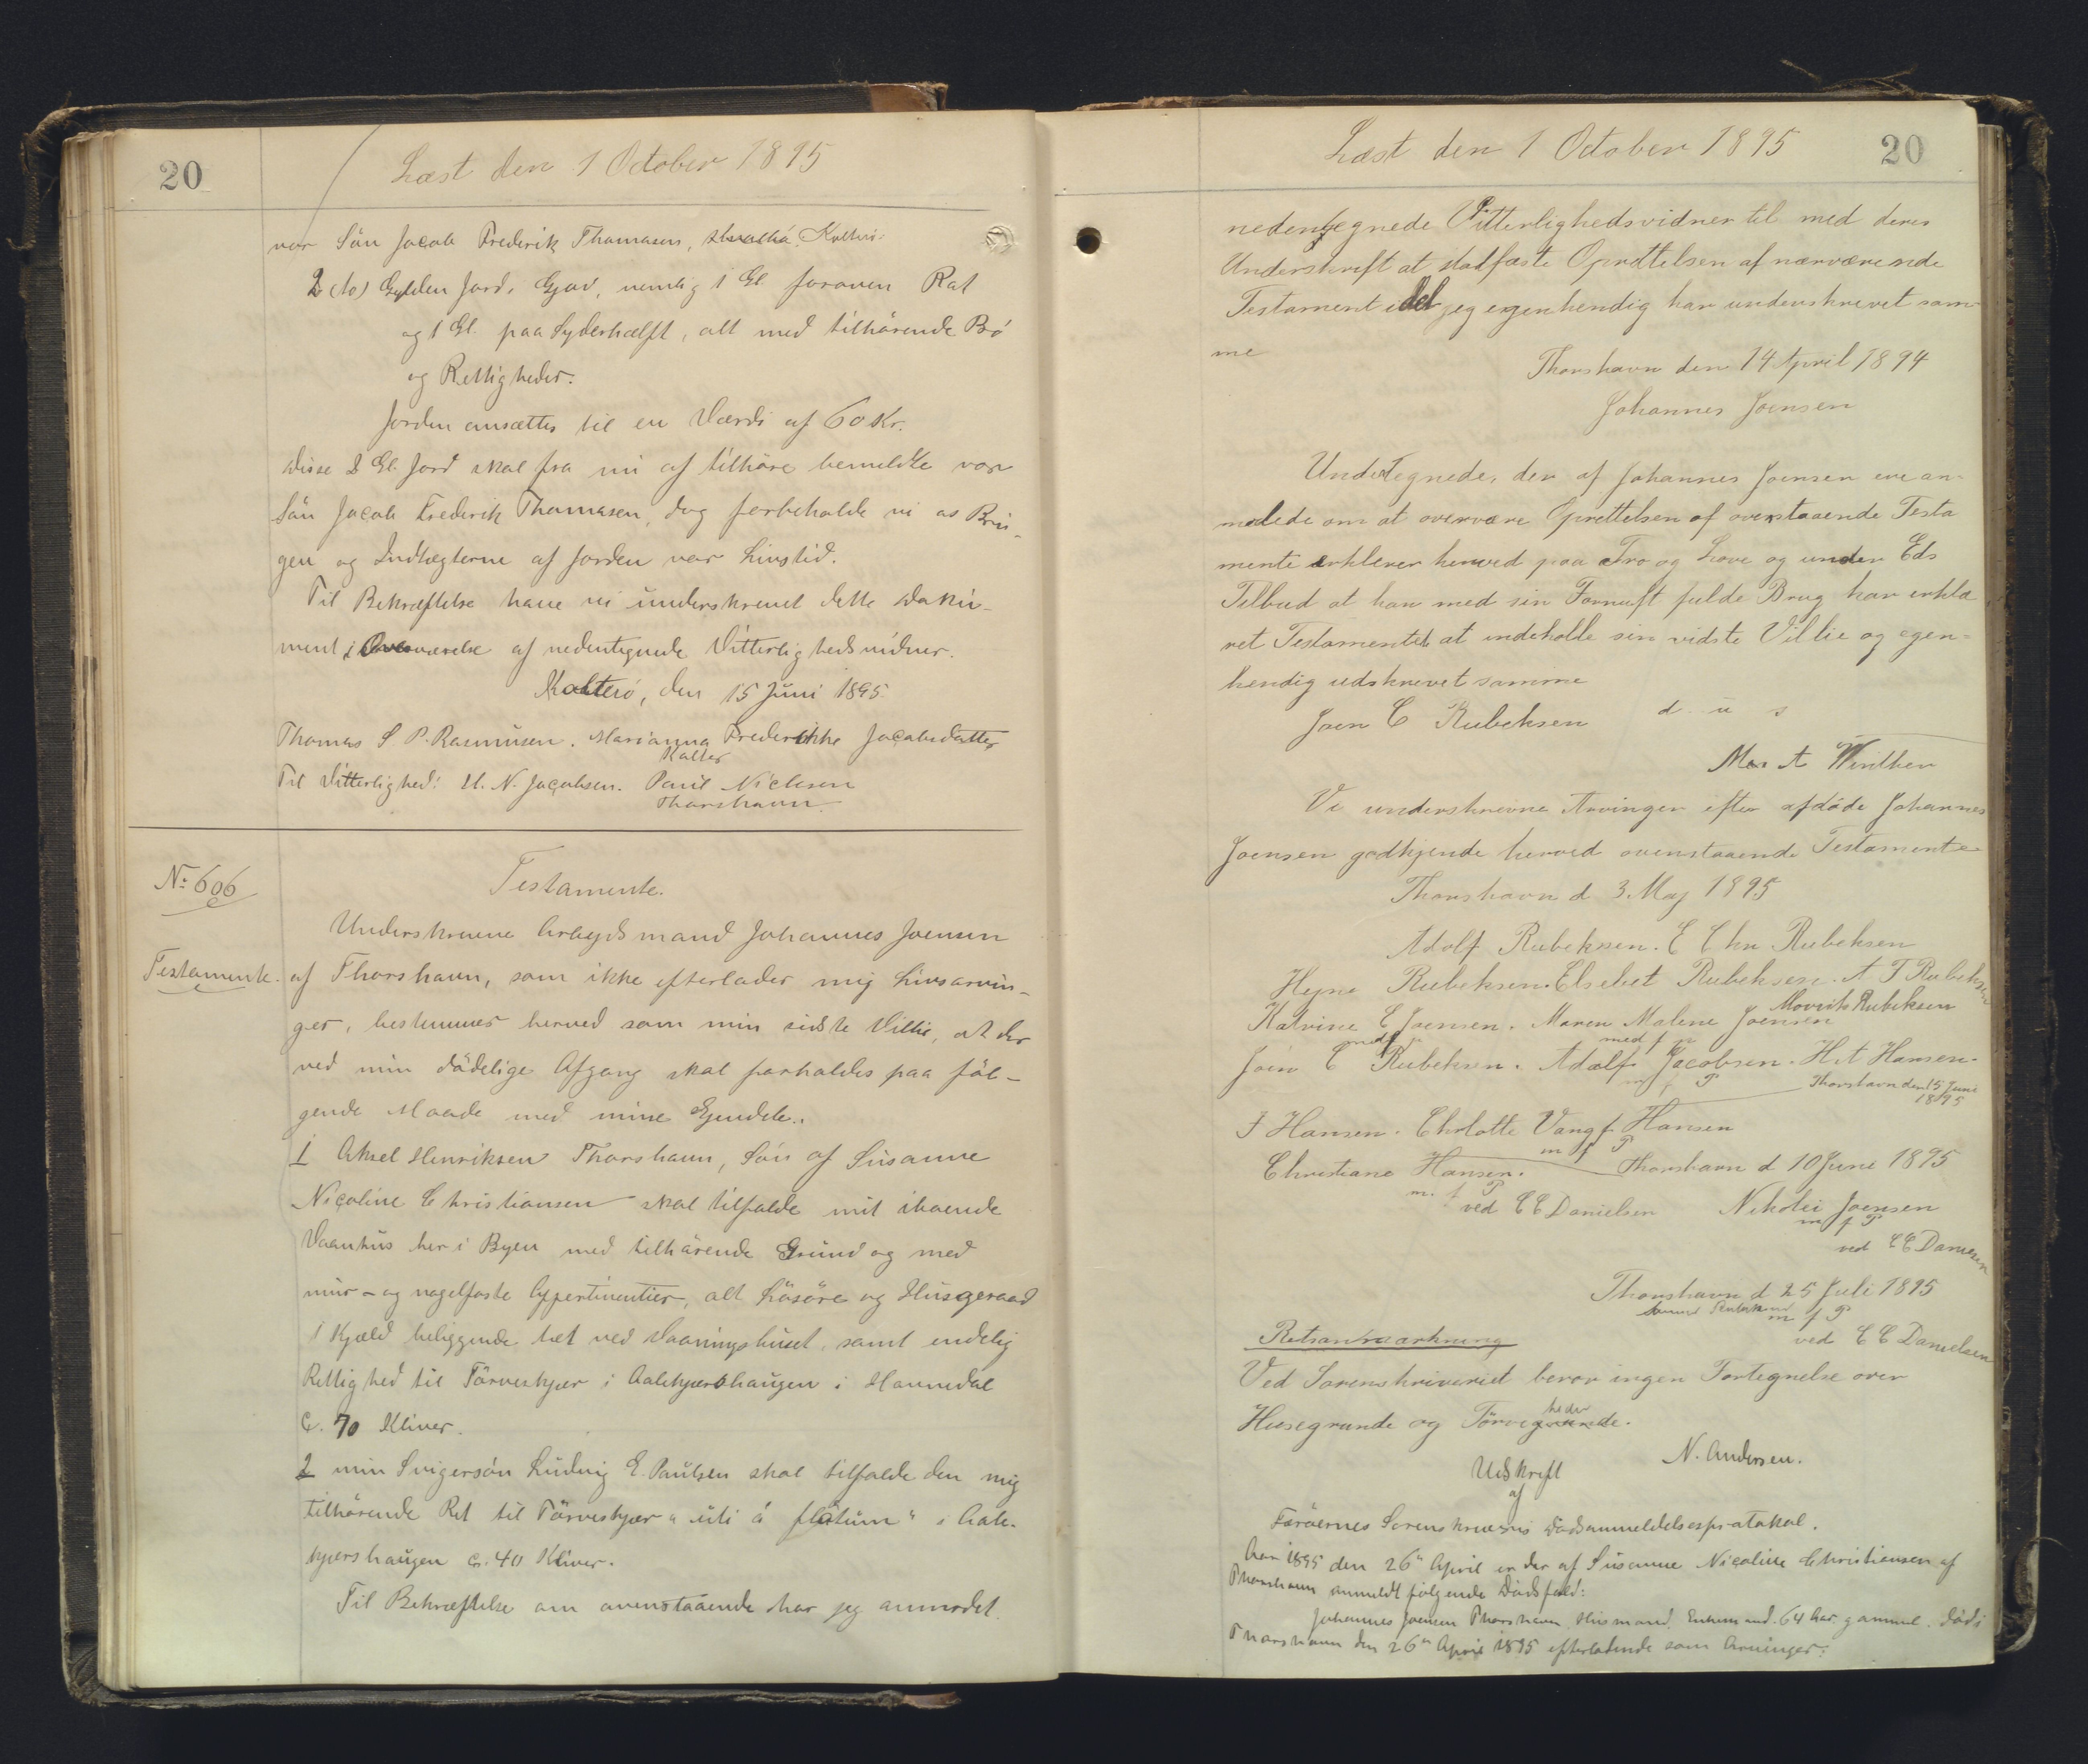 20
Læst den 1 October 1895
vor Sön Jacob Frederik Thomasen, Kolteri
2 (to) Gylden Jord, Gjov, nemlig 1 Gl foroven Rat
og 1 Gl. paa Syderhælft, alt med tilhörende Bö
og Rettigheder.
Jorden ansættes til en Værdi af 60 Kr.
Disse 2 Gl. Jord skal fra nu af tilhöre bemeldte vor
Sön Jacob Frederik Thomasen, dog forbeholde vi os Brü-
gen og Indtægterne af Jorden vor Livstid.
Til Bekræftelse have vi underskrevet dette Dokü-
ment i Overværelse af nedentegnede Vitterlighedsvidner.
Kolterö, den 15 Juni 1895.
Thomas S P. Rasmusen. Marianna Frederikke Jacobsdatter
Kolter
Til Vitterlighed: H. N. Jacobsen. Paul Niclesen
Thorshavn.
No 606
Testamente.
Underskrevne Arbejdsmand Johannes Joensen
Testamente. af Thorshavn, som ikke efterlader mig Livsarvin-
ger, bestemmer herved som min sidste Villie, at der
ved min dödelige Afgang skal forholdes paa föl-
gende Maade med mine Ejendele.
1 Aksel Henriksen Thorshavn, Sön af Susanne
Nicoline Christiansen skal tilfalde mit iboende
Vaanhus her i Byen med tilhörende Grund og med
mür- og nagelfaste Appertinentier, alt Lösöre og Husgeraad
1 Kjæld beliggende tæt ved Vaaningshuset, samt endelig
Rettighed til Törveskjær i Aalekjærshaugen i Havnedal
C. 70 Kliver.
2 min Svigersön Ludvig E. Paulsen skal tilfalde den mig
tilhörende Ret til Törveskjær "uti á flötum" i Aale-
kjershaugen C. 40 Kliver.
Til Bekræftelse om ovenstaaende har jeg anmodet
Læst den 1 October 1895
20
nedentegnede Vitterlighedsvidner til med deres
Underskrift at stadfæste Oprettelsen af nærværende
Testament idet jeg egenhendig har underskrevet sam-
me
Thorshavn den 14 April 1894
Johannes Joensen
Undertegnede, der af Johannes Joensen ere an-
modede om at overvære Oprettelsen af overstaaende Testa
mente erklerer herved paa Tro og Love og under Eds
Tilbud at han med sin Fornuft fulde Brug har erklæ
ret Testamentet at indeholde sin sidste Villie og egen-
hendig udskrevet samme
d u s
Joen C Rubeksen
M A Winther
Vi underskrevne Arvinger efter afdöde Johannes
Joensen godkjende herved ovenstaaende Testamente
Thorshavn d 3 Maj 1895
Adolf Rubeksen. E Chr Rubeksen
Hejne Rubeksen. Elsebet Rubeksen. A T Rubeksen
Movrits Rubeksen
Katrine E Joensen. Maren Malene Joensen
med f P med f P
Joen C Rubeksen. Adolf Jacobsen. H A Hansen.
m f P
Thorshavn den 15 June
1895
J Hansen. Chrlotte Vang f. Hansen
m f P
Christiane Hansen. Thorshavn d 10 June 1895
m. f P
ved C C Danielsen Nikolei Joensen
m f P
ved C C Danielsen
Thorshavn d 25 Juli 1895
m f P
ved C C Danielsen
Retsanmærkning
Ved Sorenskriveriet beror ingen Fortegnelse over
heder
Husegrunde og Törvegrunde.
N. Andersen.
Udskrift
af
Færöernes Sorenskriveris Dödsanmeldelsesprotokol.
Aar 1895 den 26de April er der af Susanne Nicoline Christiansen af
Thorshavn anmeldt følgende Dödsfald:
Johannes Joensen Thorshavn, Husmand, Enkemand. 64 Aar gammel. Död i
Thorshavn den 26de April 1895 efterladende som Arvinger: